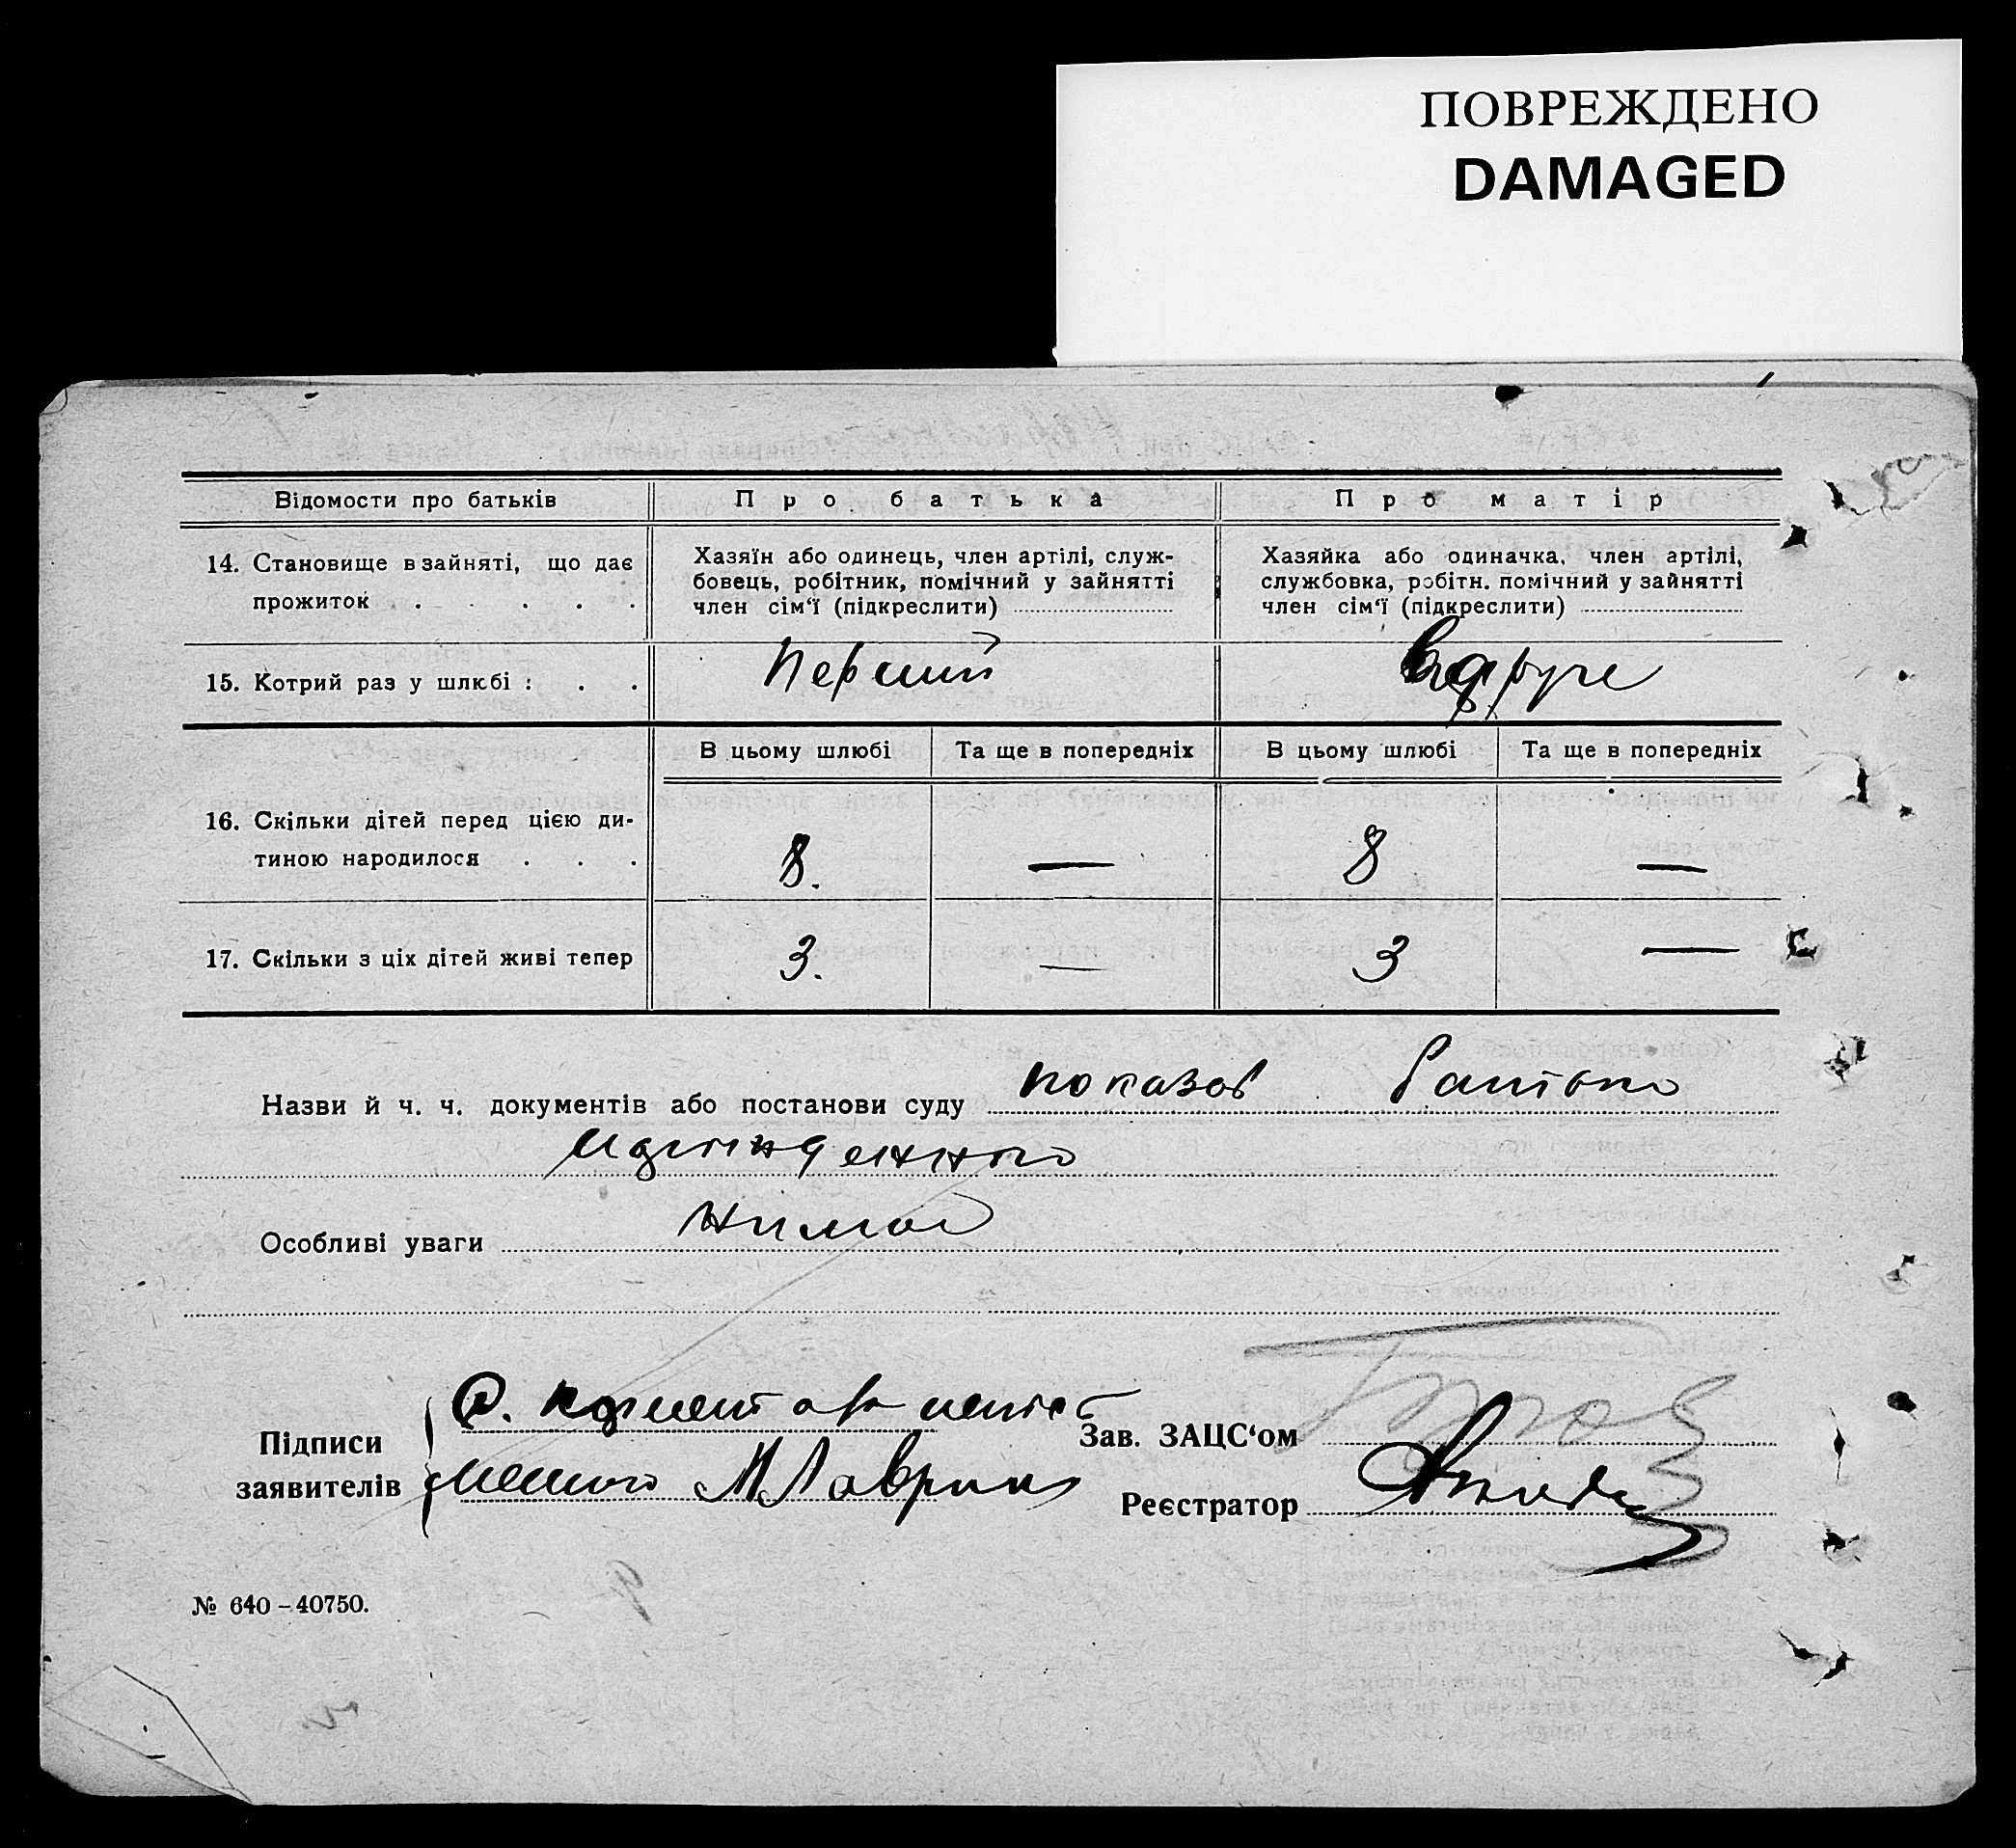 ПОВРЕЖДЕНО
DAMAGED
Відомости про батьків
Про батька
Про матір
14. Становище в зайняті, що дає
прожиток . . . . .
Хазяїн або одинець, член артілі, служ-
бовець, робітник, помічний у зайнятті
член сім‘ї (підкреслити)
Хазяйка або одиначка, член артілі,
службовка, робітн. помічний у зайнятті
член сім‘ї (підкреслити)
15. Котрий раз у шлюбі : . .
Перший
вдруге
В цьому шлюбі
Та ще в попередніх
В цьому шлюбі
Та ще в попередніх
16. Скільки дітей перед цією ди-
тиною народилося . . .
8.
—
8
—
17. Скільки з ціх дітей живі тепер
3.
—
3
—
Назви й ч. ч. документів або постанови суду показав
Особливі уваги
Підписи
заявителів
М Лаврик
Зав. ЗАЦС‘ом
Реєстратор
№ 640 – 40750.